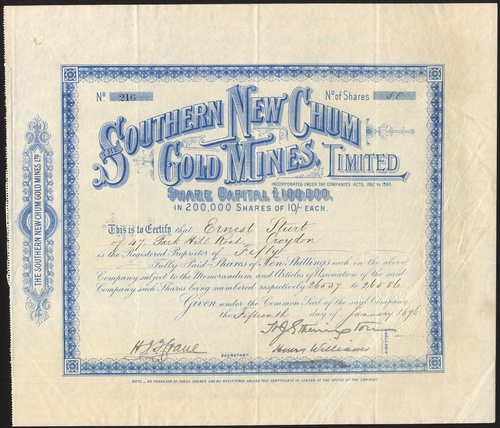 Nº 216 Nº of Shares 50
THE SOUTHERN NEW CHUM
GOLD MINES, LIMITED
INCORPORATED UNDER THE COMPANIES ACTS, 1862 TO 1890.
SHARE CAPITAL £100,000,
IN 200,000 SHARES OF 10/- EACH.
This is to Certify that Ernest Sturt
of 47, Park Hill Road, Croydon
is the Registered Proprietor of Fifty
Fully Paid Shares of Ten Shillings each in the above
Company subject to the Memorandum and Articles of Association of the said
Company such Shares being numbered respectively 26537 to 26586
Given under the Common Seal of the said Company
the Fifteenth day of January 1896
SECRETARY
Henry Williams
DIRECTORS
NOTE.—NO TRANSFER OF THESE SHARES CAN BE REGISTERED UNLESS THIS CERTIFICATE IS LODGED AT THE OFFICE OF THE COMPANY
THE SOUTHERN NEW CHUM GOLD MINES LTD